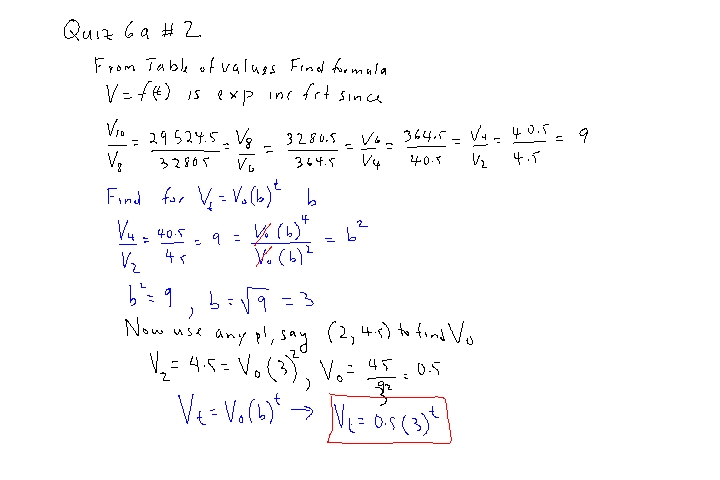 Quiz 6a # 2
From Table of values Find formula
V = f(t) is exp inc fct since
V₁₀/V₈ = 29524.5/3280.5 = V₈/V₆ = 3280.5/364.5 = V₆/V₄ = 364.5/40.5 = V₄/V₂ = 40.5/4.5 = 9
Find for V_t = V₀(b)^t b
V₄/V₂ = 40.5/4.5 = 9 = V₀(b)⁴/V₀(b)² = b²
b² = 9 , b = √9 = 3
Now use any pt, say (2, 4.5) to find V₀
V₂ = 4.5 = V₀(3)² , V₀ = 4.5/3² = 0.5
V_t = V₀(b)^t → V_t = 0.5(3)^t